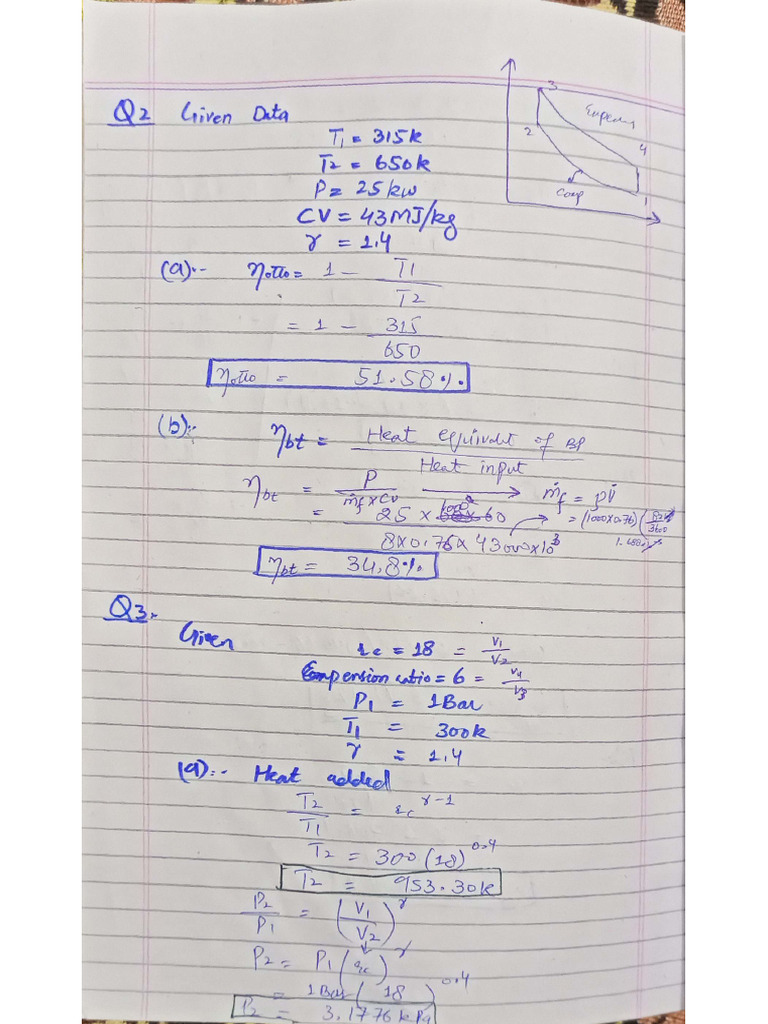 Q2 Given Data
3
Expens
2
4
Comp
1
T1 = 315k
T2 = 650k
P = 25 kw
CV = 43MJ/kg
γ = 1.4
(a):- ηotto = 1 - T1
T2
= 1 - 315
650
ηotto = 51.58%
(b):- ηbt = Heat equivalt of BP
Heat input
ηbt = P
ṁf × CV
ṁf = ρV̇
= 25 × 60
= (1000×0.76)
3600
8×0.76×43000×10³
ηbt = 34.8%
Q3:-
Given rc = 18 = V1
V2
Expension ratio = 6 = V4
V3
P1 = 1Bar
T1 = 300k
γ = 1.4
(a):- Heat added
T2
T1 = rc^γ-1
T2 = 300(18)^0.4
T2 = 953.30k
P2
P1 = (V1
V2)^γ
P2 = P1(rc)^γ
= 1Bar(18)^0.4
P2 = 3.1776 kPa